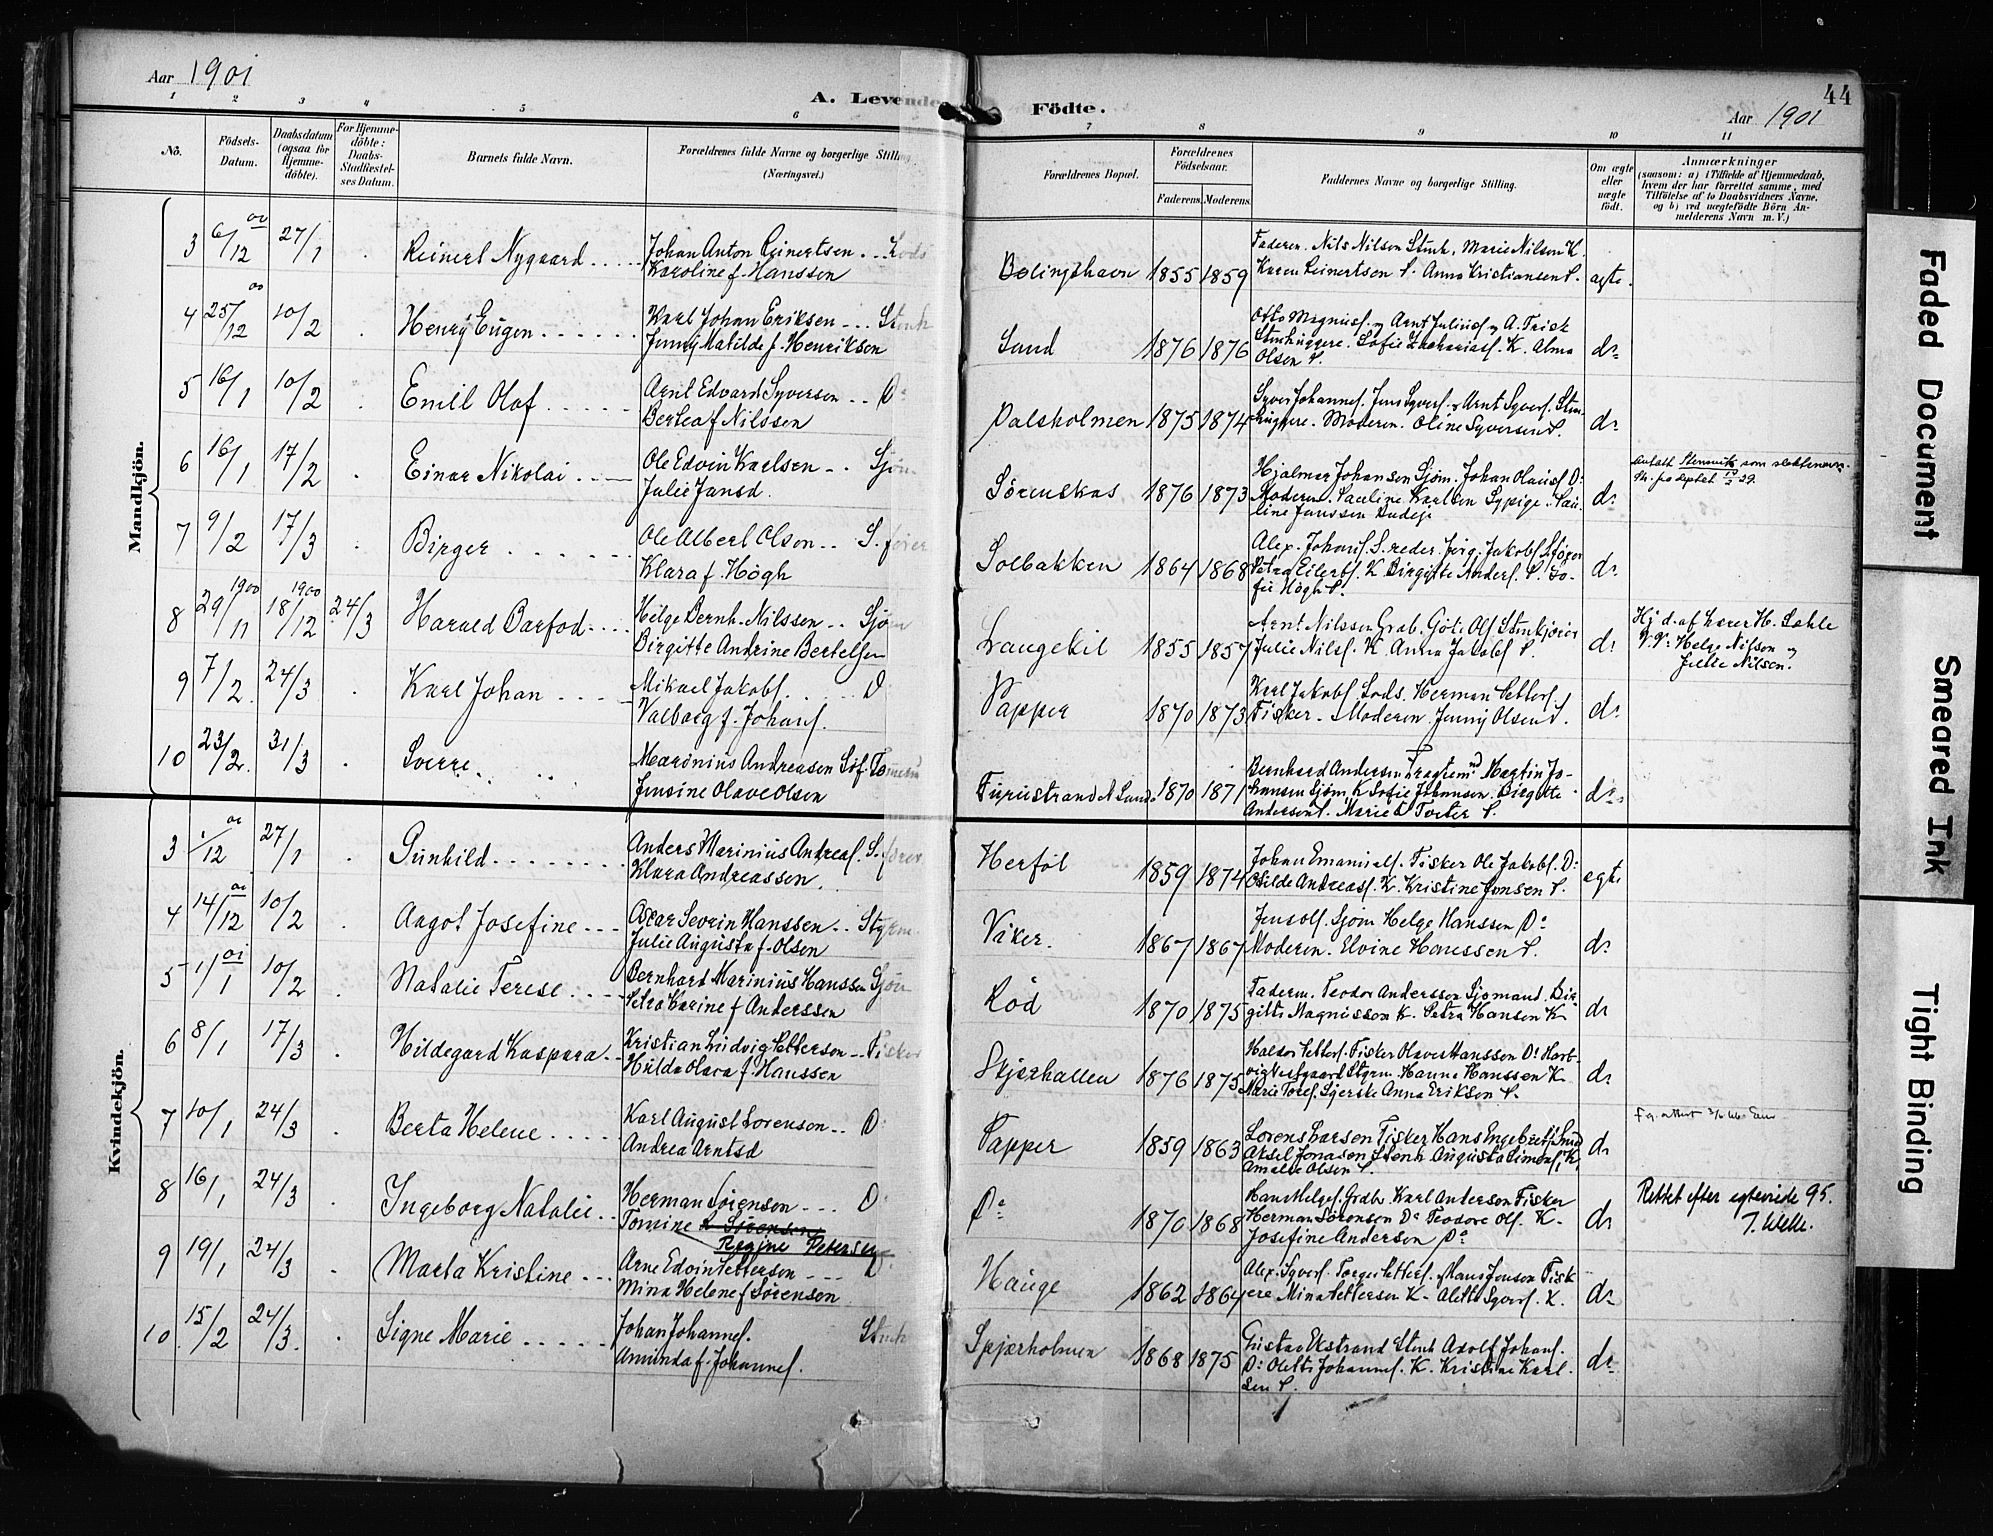 Aar 1901
A. Levende Födte.
44
Aar 1901
1 2 3 4 5 6 7 8 9 10 11
No.
Födsels-Datum.
Daabsdatum (ogsaa for Hjemme-döbte).
For Hjemme-döbte: Daabs-Stadfæstel-ses Datum.
Barnets fulde Navn.
Forældrenes fulde Navne og borgerlige Stilling
(Næringsvei.)
Forældrenes Bopæl.
Forældrenes Födselsaar.
Faderens. Moderens.
Faddernes Navne og borgerlige Stilling.
Om ægte eller uægte födt.
Anmærkninger
(saasom: a) i Tilfælde af Hjemmedaab,
hvem der har forrettet samme, med
Tilföielse af to Daabsvidners Navne,
og b) ved uægtefödte Börn An-
melderens Navn m. V.)
Mandkjön.
3 6/12 00 27/1 Reinert Nygaard Johan Anton Reinertsen Lods
Karoline f. Hanssen
Bølingshavn 1855 1859 Faderen. Nils Nilsen Stenh. Marie Nilsen K.
Karen Reinertsen P. Anna Kristiansen P. ægte.
4 25/12 00 10/2 Henry Eugen Karl Johan Eriksen Stenh
Jenny Matilde f. Henriksen
Sand 1876 1876 Otto Magnus. og Arnt Julius. og A. Frisk
Stenhuggere. Sofie Zakarias. K. Alma
Olsen P. do
5 16/1 10/2 Emil Olaf Arnt Edvard Syversen Do
Bertea f Nilssen
Dalsholmen 1875 1874 Syver Johannes. Jens Syvers. Arnt Syvers. Sten-
huggere. Moderen. Oline Syversen P. do
6 16/1 17/2 Einar Nikolai Ole Edvin Karlsen Sjøm
Julie Jansd.
Sørenskas 1876 1873 Hjalmar Johansen Sjøm. Johan Olaus. Do
Moderen. Pauline Karlsen Sypige. Pau-
line Janssen Budeje do
Antatt Stenvik som slektsnavn.
7 9/2 17/3 Birger Ole Albert Olsen S.fører
Klara f. Høgh
Solbakken 1864 1868 Alex. Johans. S.reder. Jørg. Jakobs. S.fører
Petra Eilerts. K. Birgitte Anders. P. So-
fie Høgh P. do
8 29/11 1900 18/12 1900 24/3 Harald Barfod Helge Bernh. Nilssen Sjøm
Birgitte Andrine Bertelsen
Langekil 1855 1857 Arnt Nilssen Grab. Göte Ols. Stenkjører
Julie Nils. K. Anna Jakobs. P. do
Hj.d. af lærer H. Sahle
V.V: Helge Nilsen og
Julie Nilsen.
9 7/2 24/3 Karl Johan Mikael Jakobs. Do
Valborg f. Johans.
Papper 1870 1873 Karl Jakobs. Lods. Herman Petters.
Fisker. Moderen. Jenny Olsen P. do
10 23/2 31/3 Sverre Marinius Andreasen
Jensine Olave Olsen
1870 1871 Bernhard Andersen Martin Jo-
hansen Sjøm. K. Sofie Johansen. Birgitte
Andersen P. Marie Tveter P. do
Kvindekjön.
3 1/12 00 27/1 Gunhild Anders Marinius Andreas. S.fører
Klara Andreassen.
Herföl 1859 1874 Johan Emanuels. Fisker Ole Jakobs. Do
Otilde Andreas. K. Kristine Jensen P. egte
4 14/12 00 10/2 Aagot Josefine Oscar Sevrin Hanssen Styrm
Julie Augusta f. Olsen
Viker. 1867 1867 Jens Ols. Sjøm Helge Hanssen Do
Moderen. Elvine Hanssen P. do
5 1/1 01 10/2 Natalie Terese Bernhard Marinius Hanssen Sjøm
Petra Karine f Anderssen
Röd 1870 1875 Faderen. Teodor Andersson Sjømand. Bir-
gitte Magnissen K. Petra Hansen K. do
6 8/1 17/3 Hildegard Kaspara Kristian Ludvig Petterson Fisker
Hulda Olava f. Hanssen
Skjærhallen 1876 1875 Halvor Petters. Fisker Olaves Hanssen Do Hart-
vig Vestgaard Styrm. Hanna Hanssen K.
Marie Tores. Syerske Anna Eriksen P. do
7 10/1 24/3 Berta Helene Karl August Sorenson Do
Andrea Arntsd
Papper 1859 1863 Lorens Larsen Fisker Hans Engebret. Smed
Aksel Jonasen Stenh. Augusta Simons. K.
Amalie Olsen P. do
8 16/1 24/3 Ingeborg Natalie Herman Sørenson Do
Tomine f. Sørensen
Regine Petersen
Do 1870 1868 Hans Helges. Grdbr. Karl Anderson Fisker
Herman Sørenson Do Teodore Ols. K.
Josefine Andersen Do do
Rettet efter egtevide 95.
9 19/1 24/3 Marta Kristine Arne Edvin Petterson D
Mina Helene f Sørenson
Hauge 1862 1864 Alex. Syvers. Torger Petters. Hans Jenson Fisk-
ere Mina Petterson K. Alette Syvers. K. do
10 15/2 24/3 Signe Marie Johan Johannes. Stenh
Amunda f. Johannes.
Spjærholmen 1868 1875 Gustav Ekstrand Stenh Adolf Johans.
Do Olette Johannes. K. Kristine Karl-
sen P. do
Faded Document
Smeared Ink
Tight Binding